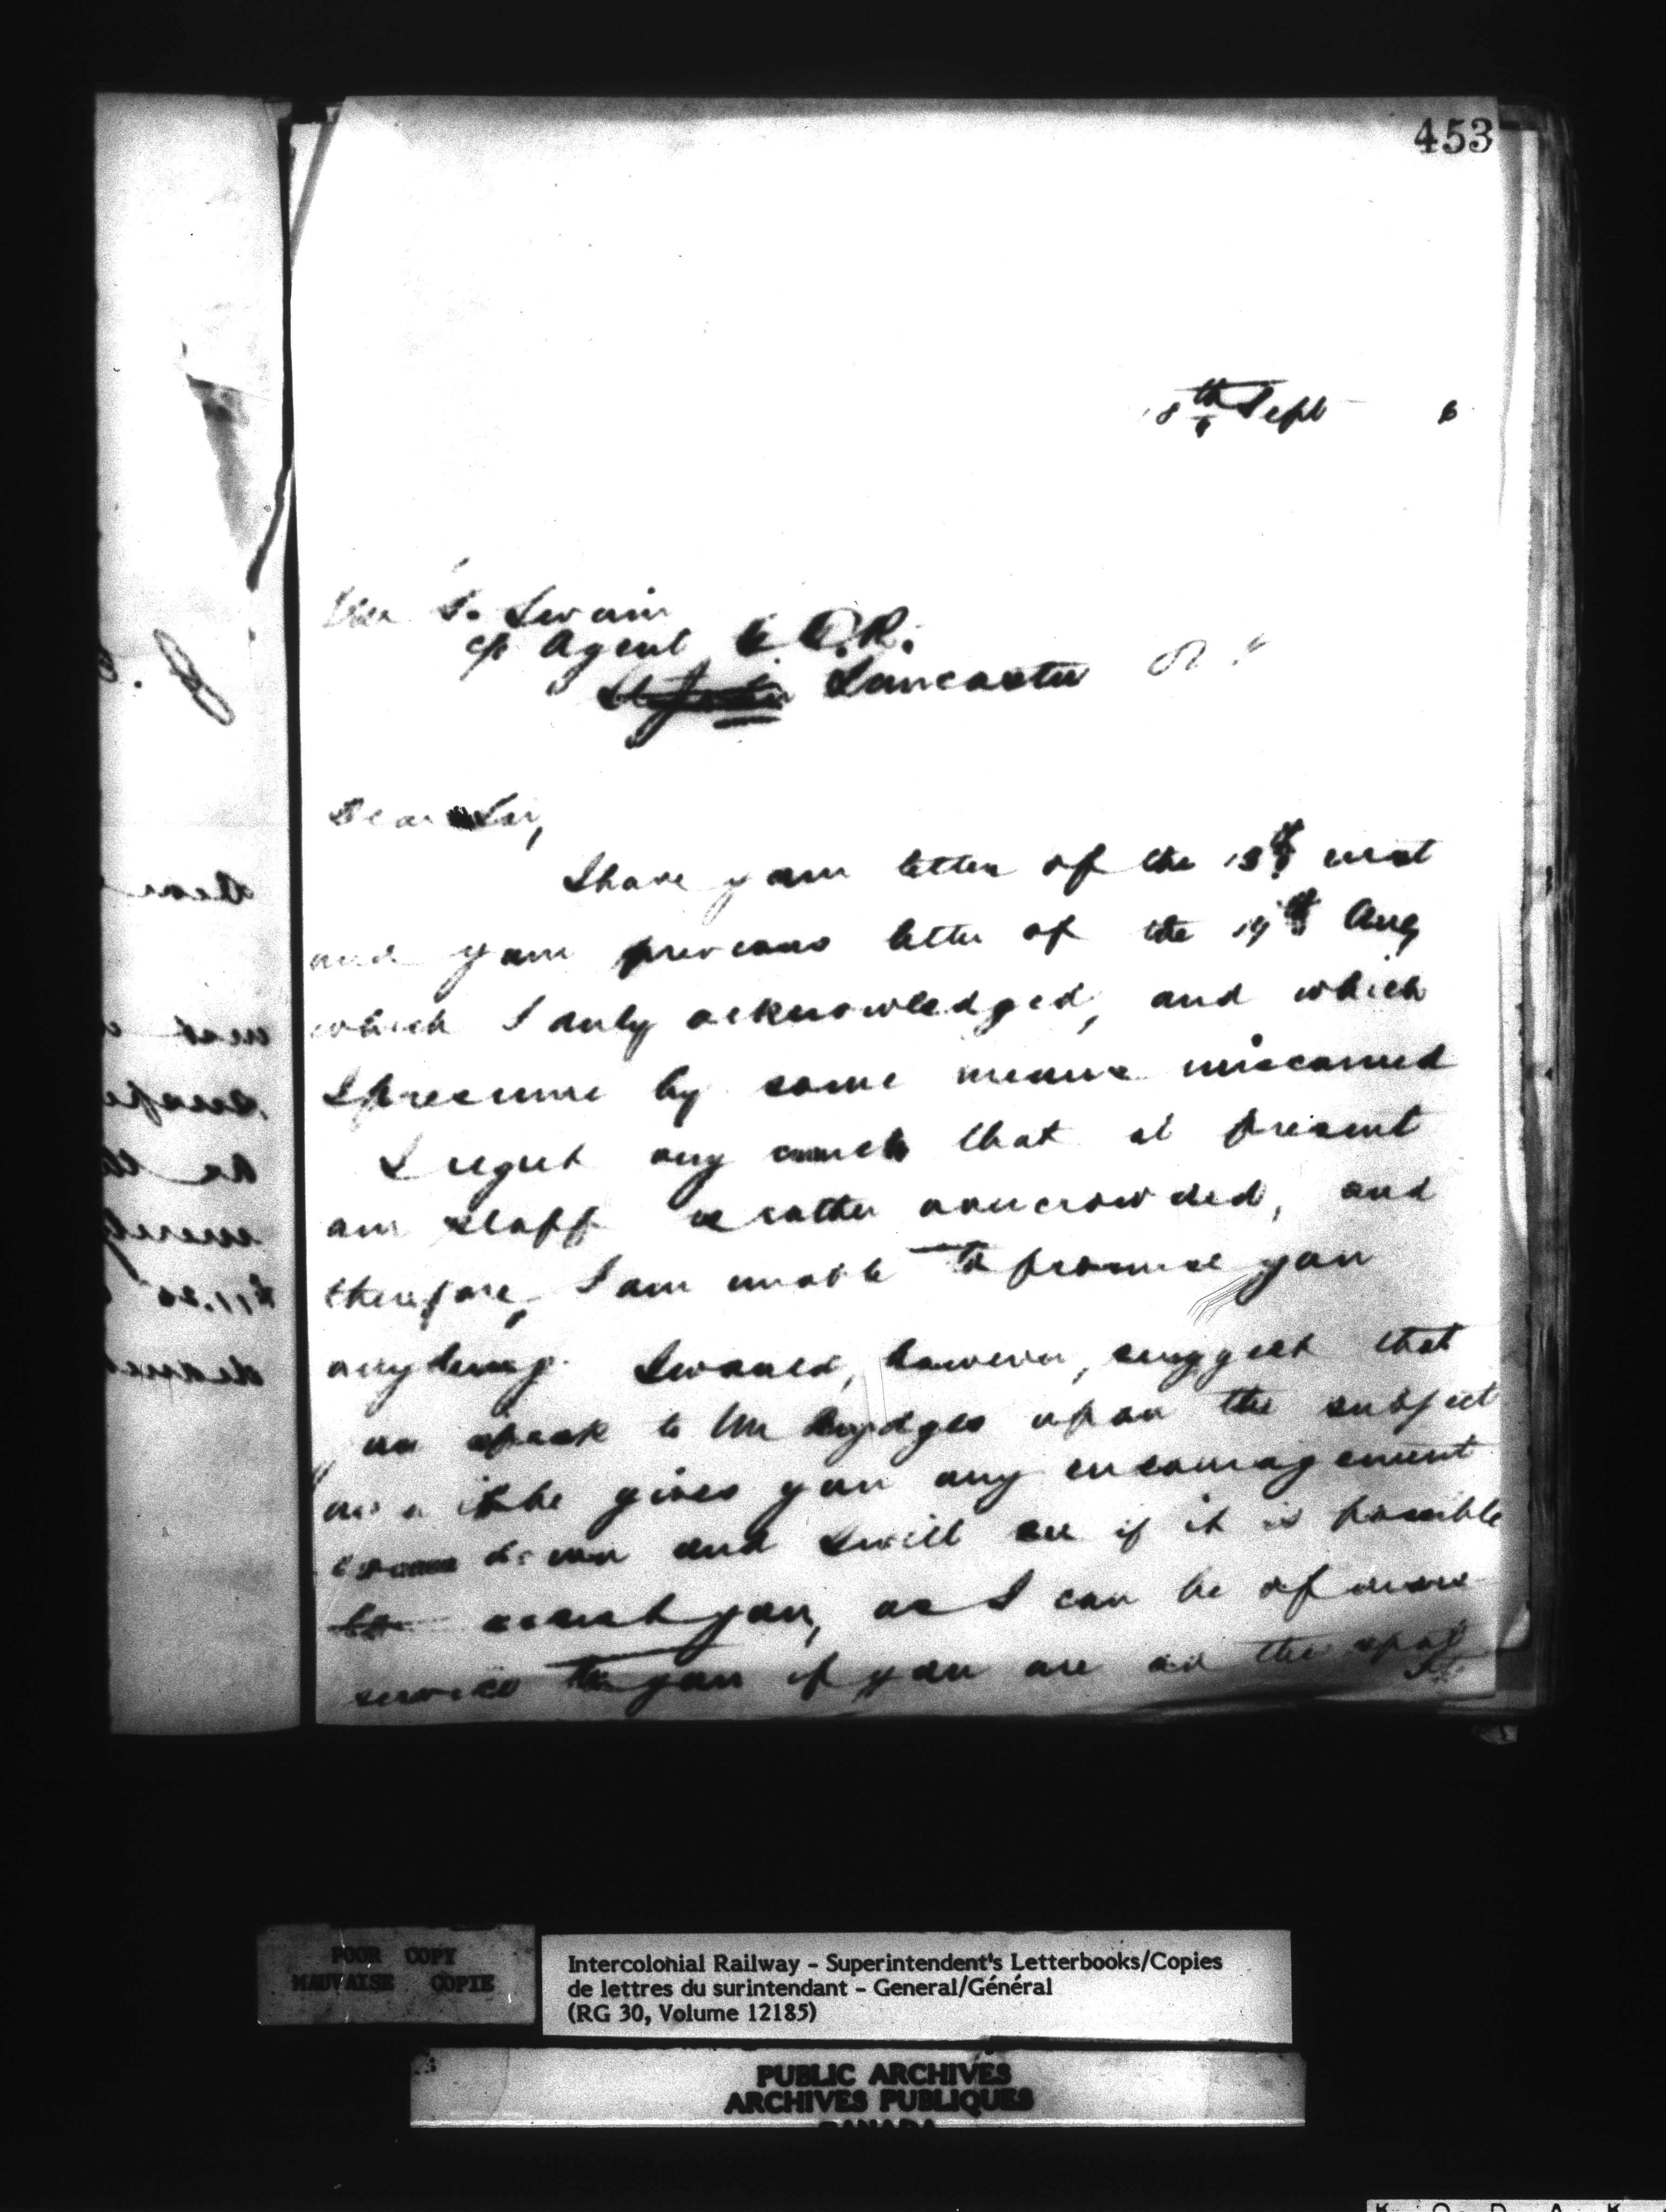 453
18th Sept 6
Mr S. Swain
c/o Agent G.T.R.
St John Lancaster
Dear Sir,
I have your letter of the 13th inst
and your previous letter of the 19th Aug
which I duly acknowledged, and which
I presume by some means miscarried
I regret very much that at present
our staff is rather overcrowded, and
therefore, I am unable to promise you
anything. I would, however, suggest that
you speak to Mr Brydges upon the subject
and if he gives you any encouragement
come down and I will see if it is possible
to assist you, as I can be of more
service to you if you are on the spot
POOR COPY
MAUVAISE COPIE
Intercolonial Railway - Superintendent's Letterbooks/Copies
de lettres du surintendant - General/Général
(RG 30, Volume 12185)
PUBLIC ARCHIVES
ARCHIVES PUBLIQUES
CANADA
K O D A K